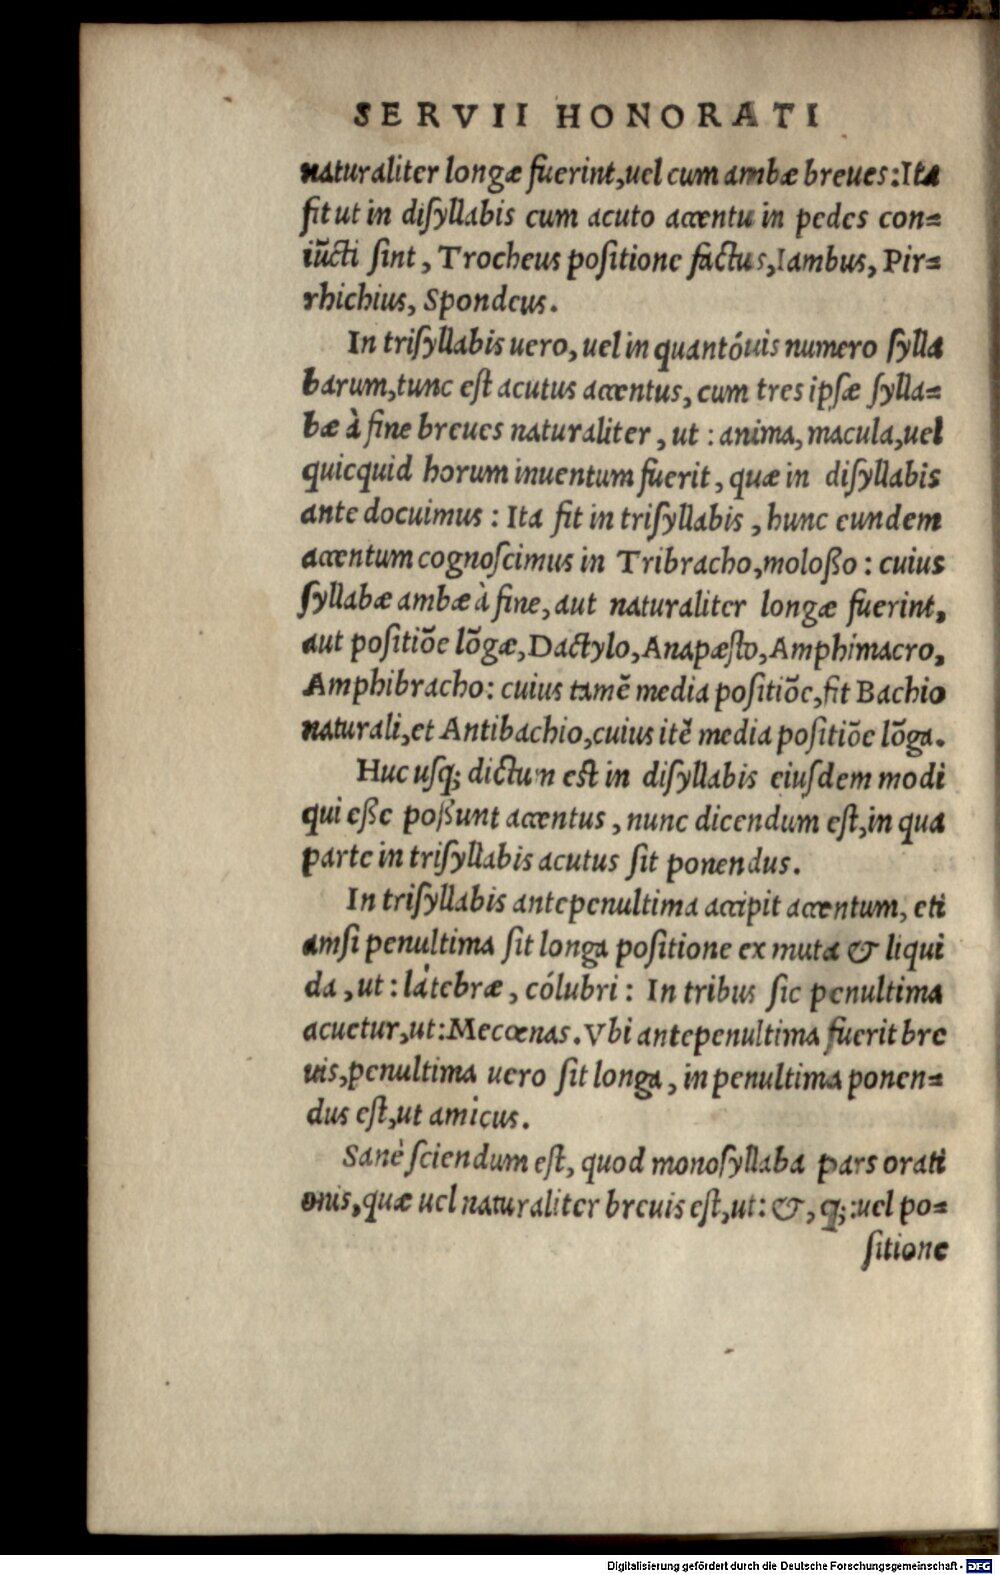 SERVII HONORATI
naturaliter longæ fuerint, uel cum ambæ breues: Ita
fit ut in diſyllabis cum acuto accentu in pedes con=
iūcti ſint, Trocheus poſitione factus, Iambus, Pir=
rhichius, Spondeus.
In triſyllabis uero, uel in quantóuis numero ſylla
barum, tunc eſt acutus accentus, cum tres ipſæ ſylla=
bæ à fine breues naturaliter, ut: anima, macula, uel
quicquid horum inuentum fuerit, quæ in diſyllabis
ante docuimus: Ita fit in triſyllabis, hunc eundem
accentum cognoſcimus in Tribracho, moloßo: cuius
ſyllabæ ambæ à fine, aut naturaliter longæ fuerint,
aut poſitiōe lōgæ, Dactylo, Anapæſto, Amphimacro,
Amphibracho: cuius tamē media poſitiōe, fit Bachio
naturali, et Antibachio, cuius itē media poſitiōe lōga.
Huc uſq; dictum eſt in diſyllabis eiuſdem modi
qui eße poßunt accentus, nunc dicendum eſt, in qua
parte in triſyllabis acutus ſit ponendus.
In triſyllabis antepenultima accipit accentum, eti
amſi penultima ſit longa poſitione ex muta & liqui
da, ut: làtebræ, cólubri: In tribus ſic penultima
acuetur, ut: Mecœnas. Vbi antepenultima fuerit bre
uis, penultima uero ſit longa, in penultima ponen=
dus eſt, ut amicus.
Sanè ſciendum eſt, quod monoſyllaba pars orati
onis, quæ uel naturaliter breuis eſt, ut: &, q;: uel po=
ſitione
Digitalisierung gefördert durch die Deutsche Forschungsgemeinschaft - DFG